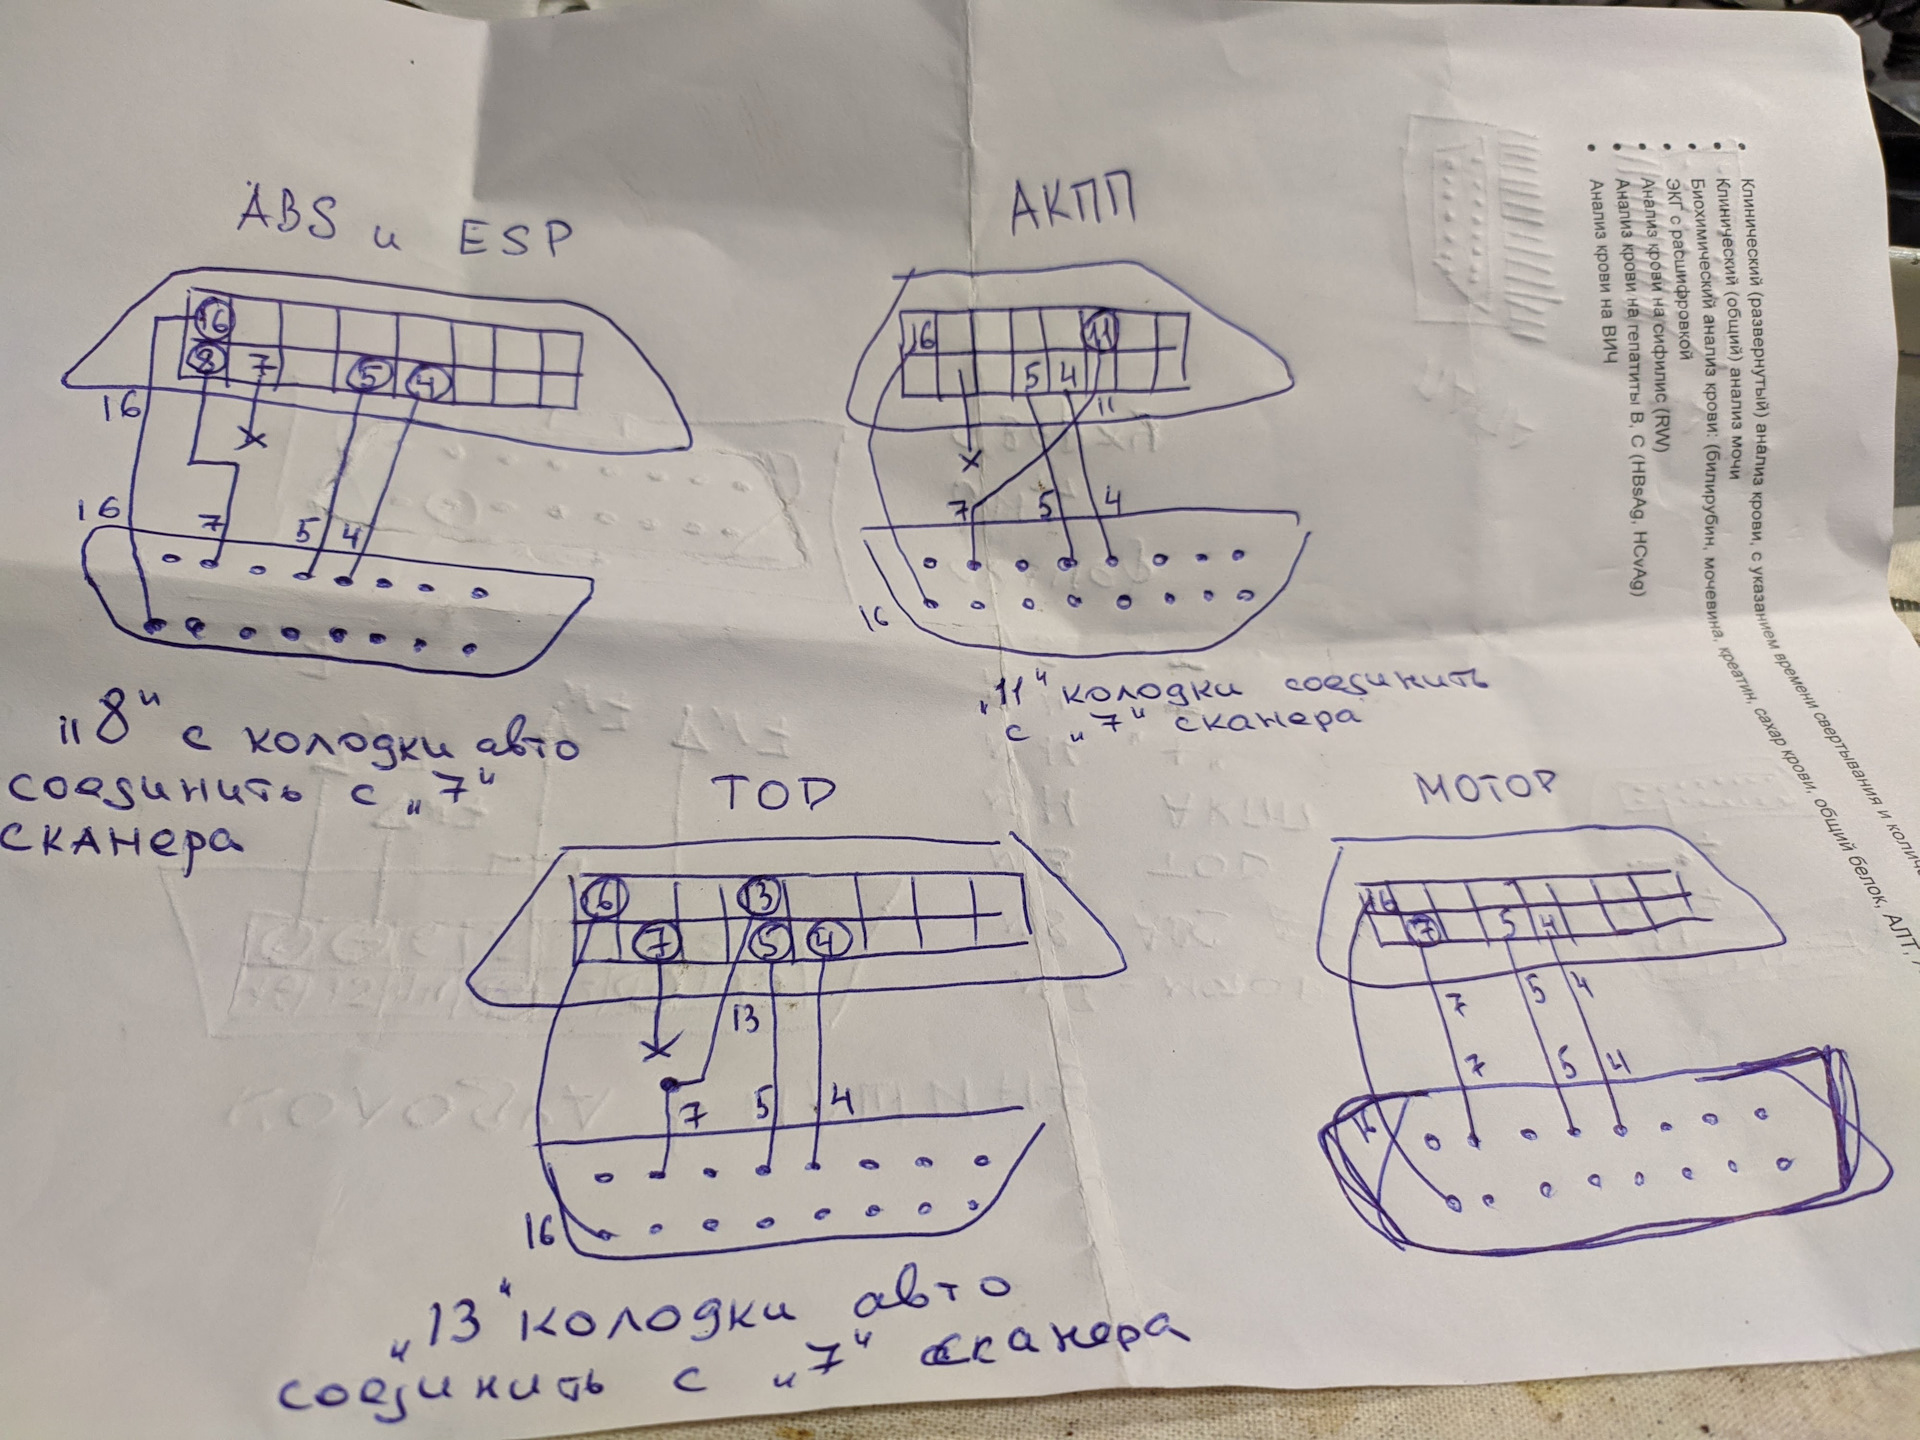 ABS и ESP
16
8
7
5
4
16
16
7
5
4
„8“ с колодки авто
соединить с „7“
сканера
АКПП
16
11
5
4
11
7
5
4
16
„11“ колодки соединить
с „7“ сканера
TOD
16
13
7
5
4
13
7
5
4
16
„13“ колодки авто
соединить с „7“ сканера
МОТОР
16
7
5
4
7
5
4
7
5
4
16
• Клинический (развернутый) анализ крови, с указанием времени свертывания и
• Клинический (общий) анализ мочи
• Биохимический анализ крови: (билирубин, мочевина, креатин, сахар крови, общий белок, АЛТ,
• ЭКГ с расшифровкой
• Анализ крови на сифилис (RW)
• Анализ крови на гепатиты В, С (HBsAg, HCvAg)
• Анализ крови на ВИЧ